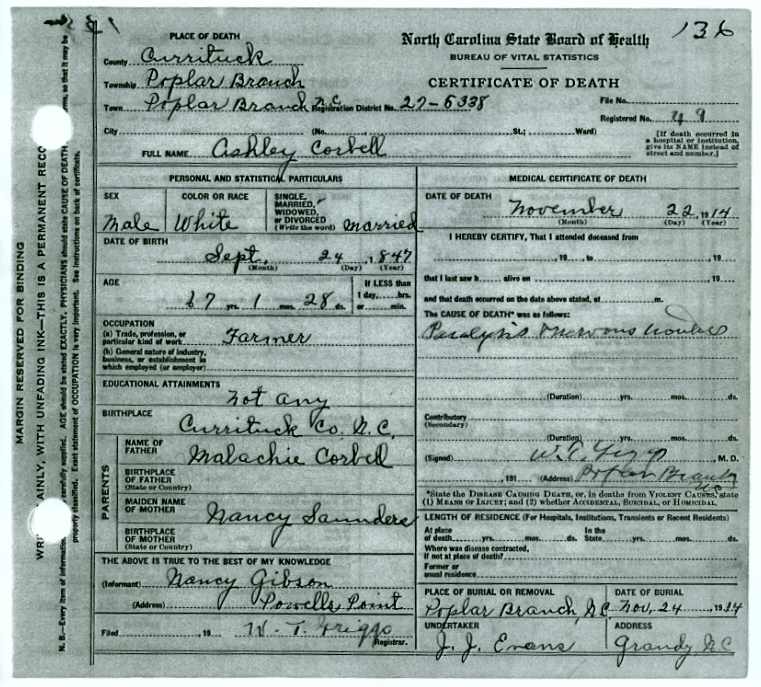 136
PLACE OF DEATH
County Currituck
Township Poplar Branch
Town Poplar Branch N.C.
City
North Carolina State Board of Health
BUREAU OF VITAL STATISTICS
CERTIFICATE OF DEATH
Registration District No. 27-6338
File No.
Registered No. 49
(No. St.; Ward)
[If death occurred in
a hospital or institution,
give its NAME instead of
street and number.]
FULL NAME Ashley Corbell
PERSONAL AND STATISTICAL PARTICULARS
SEX
Male
COLOR OR RACE
White
SINGLE,
MARRIED,
WIDOWED,
OR DIVORCED
(Write the word) Married
DATE OF BIRTH
Sept. 24, 1847
(Month) (Day) (Year)
AGE
67 yrs. 1 mos. 28 ds.
If LESS than
1 day, hrs.
or min.
OCCUPATION
(a) Trade, profession, or
particular kind of work Farmer
(b) General nature of industry,
business, or establishment in
which employed (or employer)
EDUCATIONAL ATTAINMENTS
not any
BIRTHPLACE
Currituck Co. N.C.
PARENTS
NAME OF
FATHER
Malachie Corbell
BIRTHPLACE
OF FATHER
(State or Country)
MAIDEN NAME
OF MOTHER
Nancy Saunders
BIRTHPLACE
OF MOTHER
(State or Country)
THE ABOVE IS TRUE TO THE BEST OF MY KNOWLEDGE
(Informant) Nancy Gibson
(Address) Powells Point
Filed , 19 W. T. Griggs
Registrar.
MEDICAL CERTIFICATE OF DEATH
DATE OF DEATH
November 22, 1914
(Month) (Day) (Year)
I HEREBY CERTIFY, That I attended deceased from
, 19 , to , 19
that I last saw h alive on , 19
and that death occurred on the date above stated, at m.
The CAUSE OF DEATH* was as follows:
Paralysis nervous
(Duration) yrs. mos. ds.
Contributory
(Secondary)
(Duration) yrs. mos. ds.
(Signed) M. D.
, 191 (Address) Poplar Branch
NC
*State the DISEASE CAUSING DEATH, or, in deaths from VIOLENT CAUSES, state
(1) MEANS OF INJURY; and (2) whether ACCIDENTAL, SUICIDAL, or HOMICIDAL.
LENGTH OF RESIDENCE (For Hospitals, Institutions, Transients or Recent Residents)
At place
of death yrs. mos. ds.
In the
State yrs. mos. ds.
Where was disease contracted,
if not at place of death?
Former or
usual residence
PLACE OF BURIAL OR REMOVAL
Poplar Branch, N.C.
DATE OF BURIAL
Nov. 24 1914
UNDERTAKER
J. J. Evans
ADDRESS
Grandy N.C
MARGIN RESERVED FOR BINDING
WITH UNFADING INK—THIS IS A PERMANENT
N. B.—Every item of information carefully supplied. AGE should be stated EXACTLY. PHYSICIANS should state CAUSE OF DEATH so that it may be
properly classified. Exact statement of OCCUPATION is very important. See instructions on back of certificate.